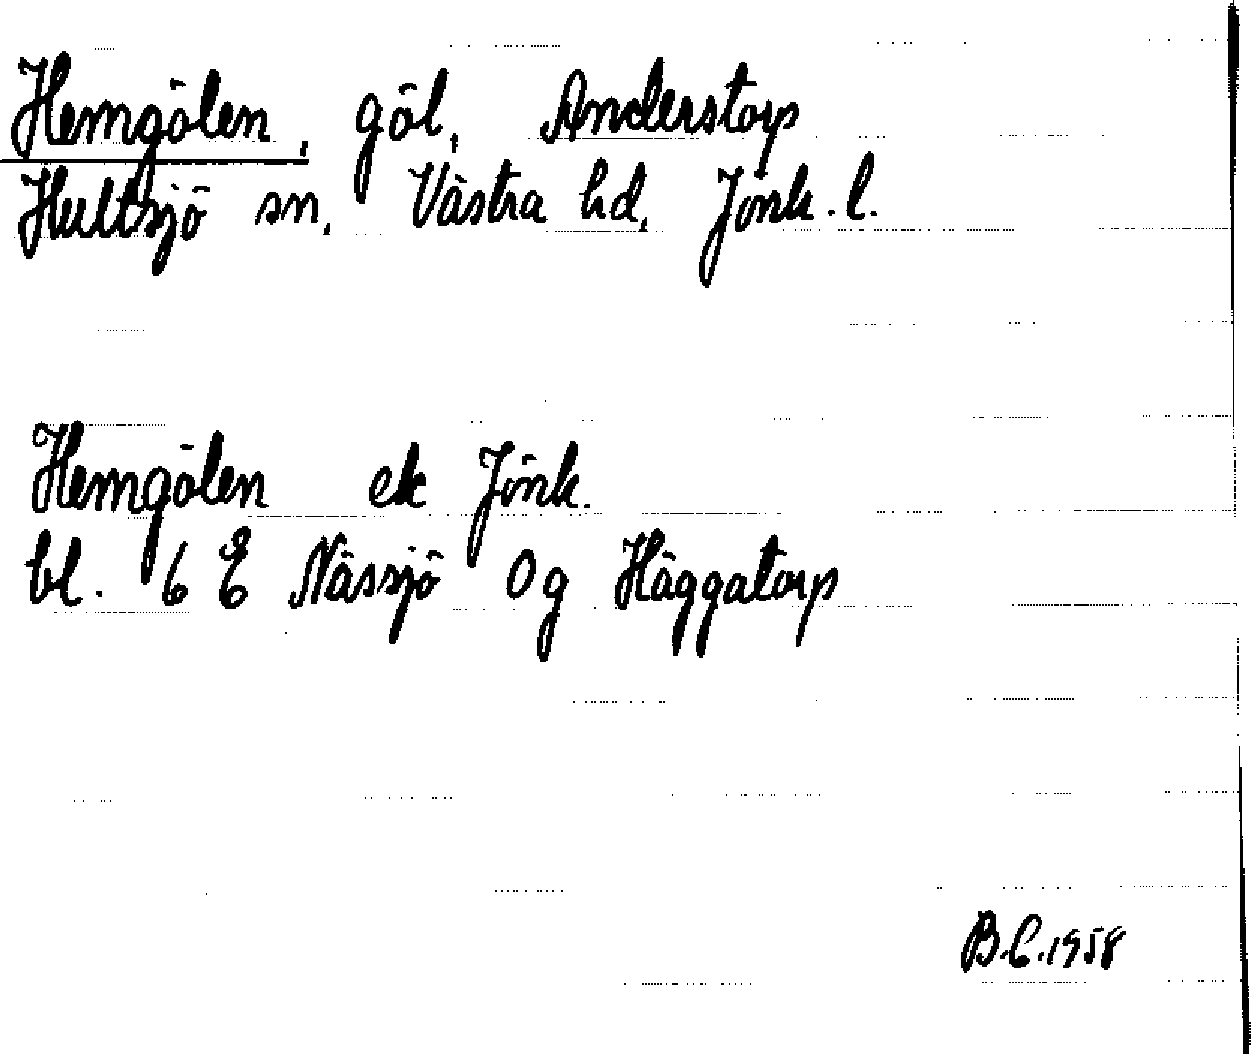 Hemgölen, göl, Anderstorp
Hultsjö sn, Västra hd, Jönk. l.
Hemgölen ek Jönk.
bl. 6 E Nässjö 0g Häggatorp
B.C. 1958